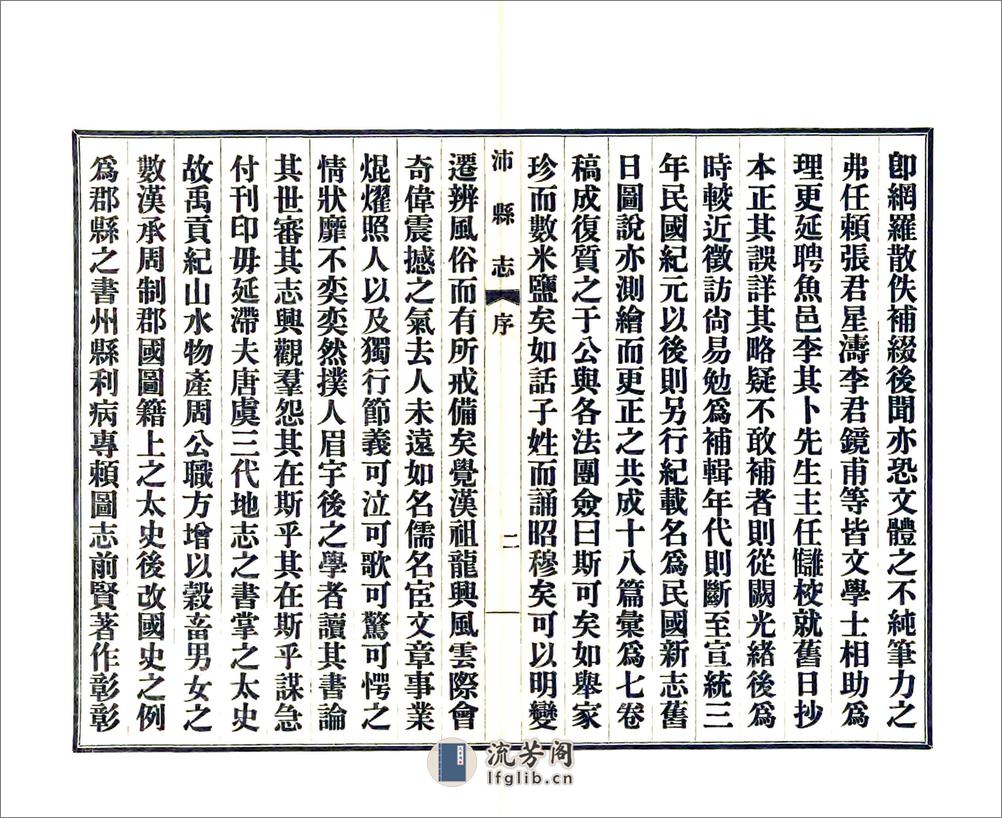 卽網羅散佚補綴後聞亦恐文體之不純筆力之
弗任賴張君星濤李君鏡甫等皆文學士相助爲
理更延聘魚邑李其卜先生主任讎校就舊日抄
本正其誤詳其略疑不敢補者則從闕光緒後爲
時較近徵訪尙易勉爲補輯年代則斷至宣統三
年民國紀元以後則另行紀載名爲民國新志舊
日圖說亦測繪而更正之共成十八篇彙爲七卷
稿成復質之于公與各法團僉曰斯可矣如舉家
珍而數米鹽矣如話子姓而誦昭穆矣可以明變
沛縣志 序 二
遷辨風俗而有所戒備矣覺漢祖龍興風雲際會
奇偉震撼之氣去人未遠如名儒名宦文章事業
焜燿照人以及獨行節義可泣可歌可驚可愕之
情狀靡不奕奕然撲人眉宇後之學者讀其書論
其世審其志興觀羣怨其在斯乎其在斯乎謀急
付刊印毋延滯夫唐虞三代地志之書掌之太史
故禹貢紀山水物產周公職方增以穀畜男女之
數漢承周制郡國圖籍上之太史後改國史之例
爲郡縣之書州縣利病專賴圖志前賢著作彰彰
流芳阁
lfglib.cn